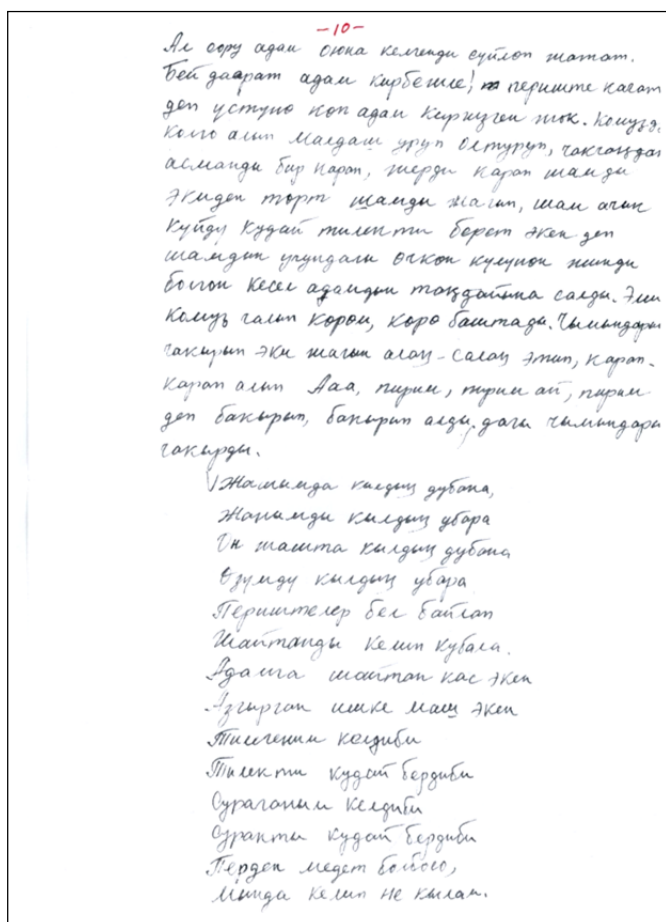 -10-
Ал оору адам оюна келгенди сүйлөп жатат.
Бей даарат адам кирбегиле! периште качат
деп үстүнө көп адам киргизген жок. Комузду
колго алып малдаш уруп олтуруп,
асманды бир карап, жерди карап шамды
экиден төрт шамды жагып, шам ачык
күйдү кудай тилекти берет экен деп
шамдын учундагы өчкөн күлүнөн жинди
болгон кесел адамдын таңдайына салды. Эми
комуз чалып көрөм, көрө баштады. Чымындарын
чакырып эки жагын алаң-салаң этип, карап-
карап алып Ааа, пирим, пирим ай, пирим
деп бакырып, бакырып алды. дагы чымындарын
чакырды.
Жашымда кылдың дубана,
Жанымды кылдың убара
Он жашта кылдың дубана
Өзүмдү кылдың убара
Периштелер бел байлап
Шайтанды келип кубала.
Адамга шайтан кас экен
Азгырган ишке маш экен
Тилегеним келдиби
Тилекти кудай бердиби
Сураганым келдиби
Суракты кудай бердиби
Перден медет болбосо,
Мында келип не кылам.